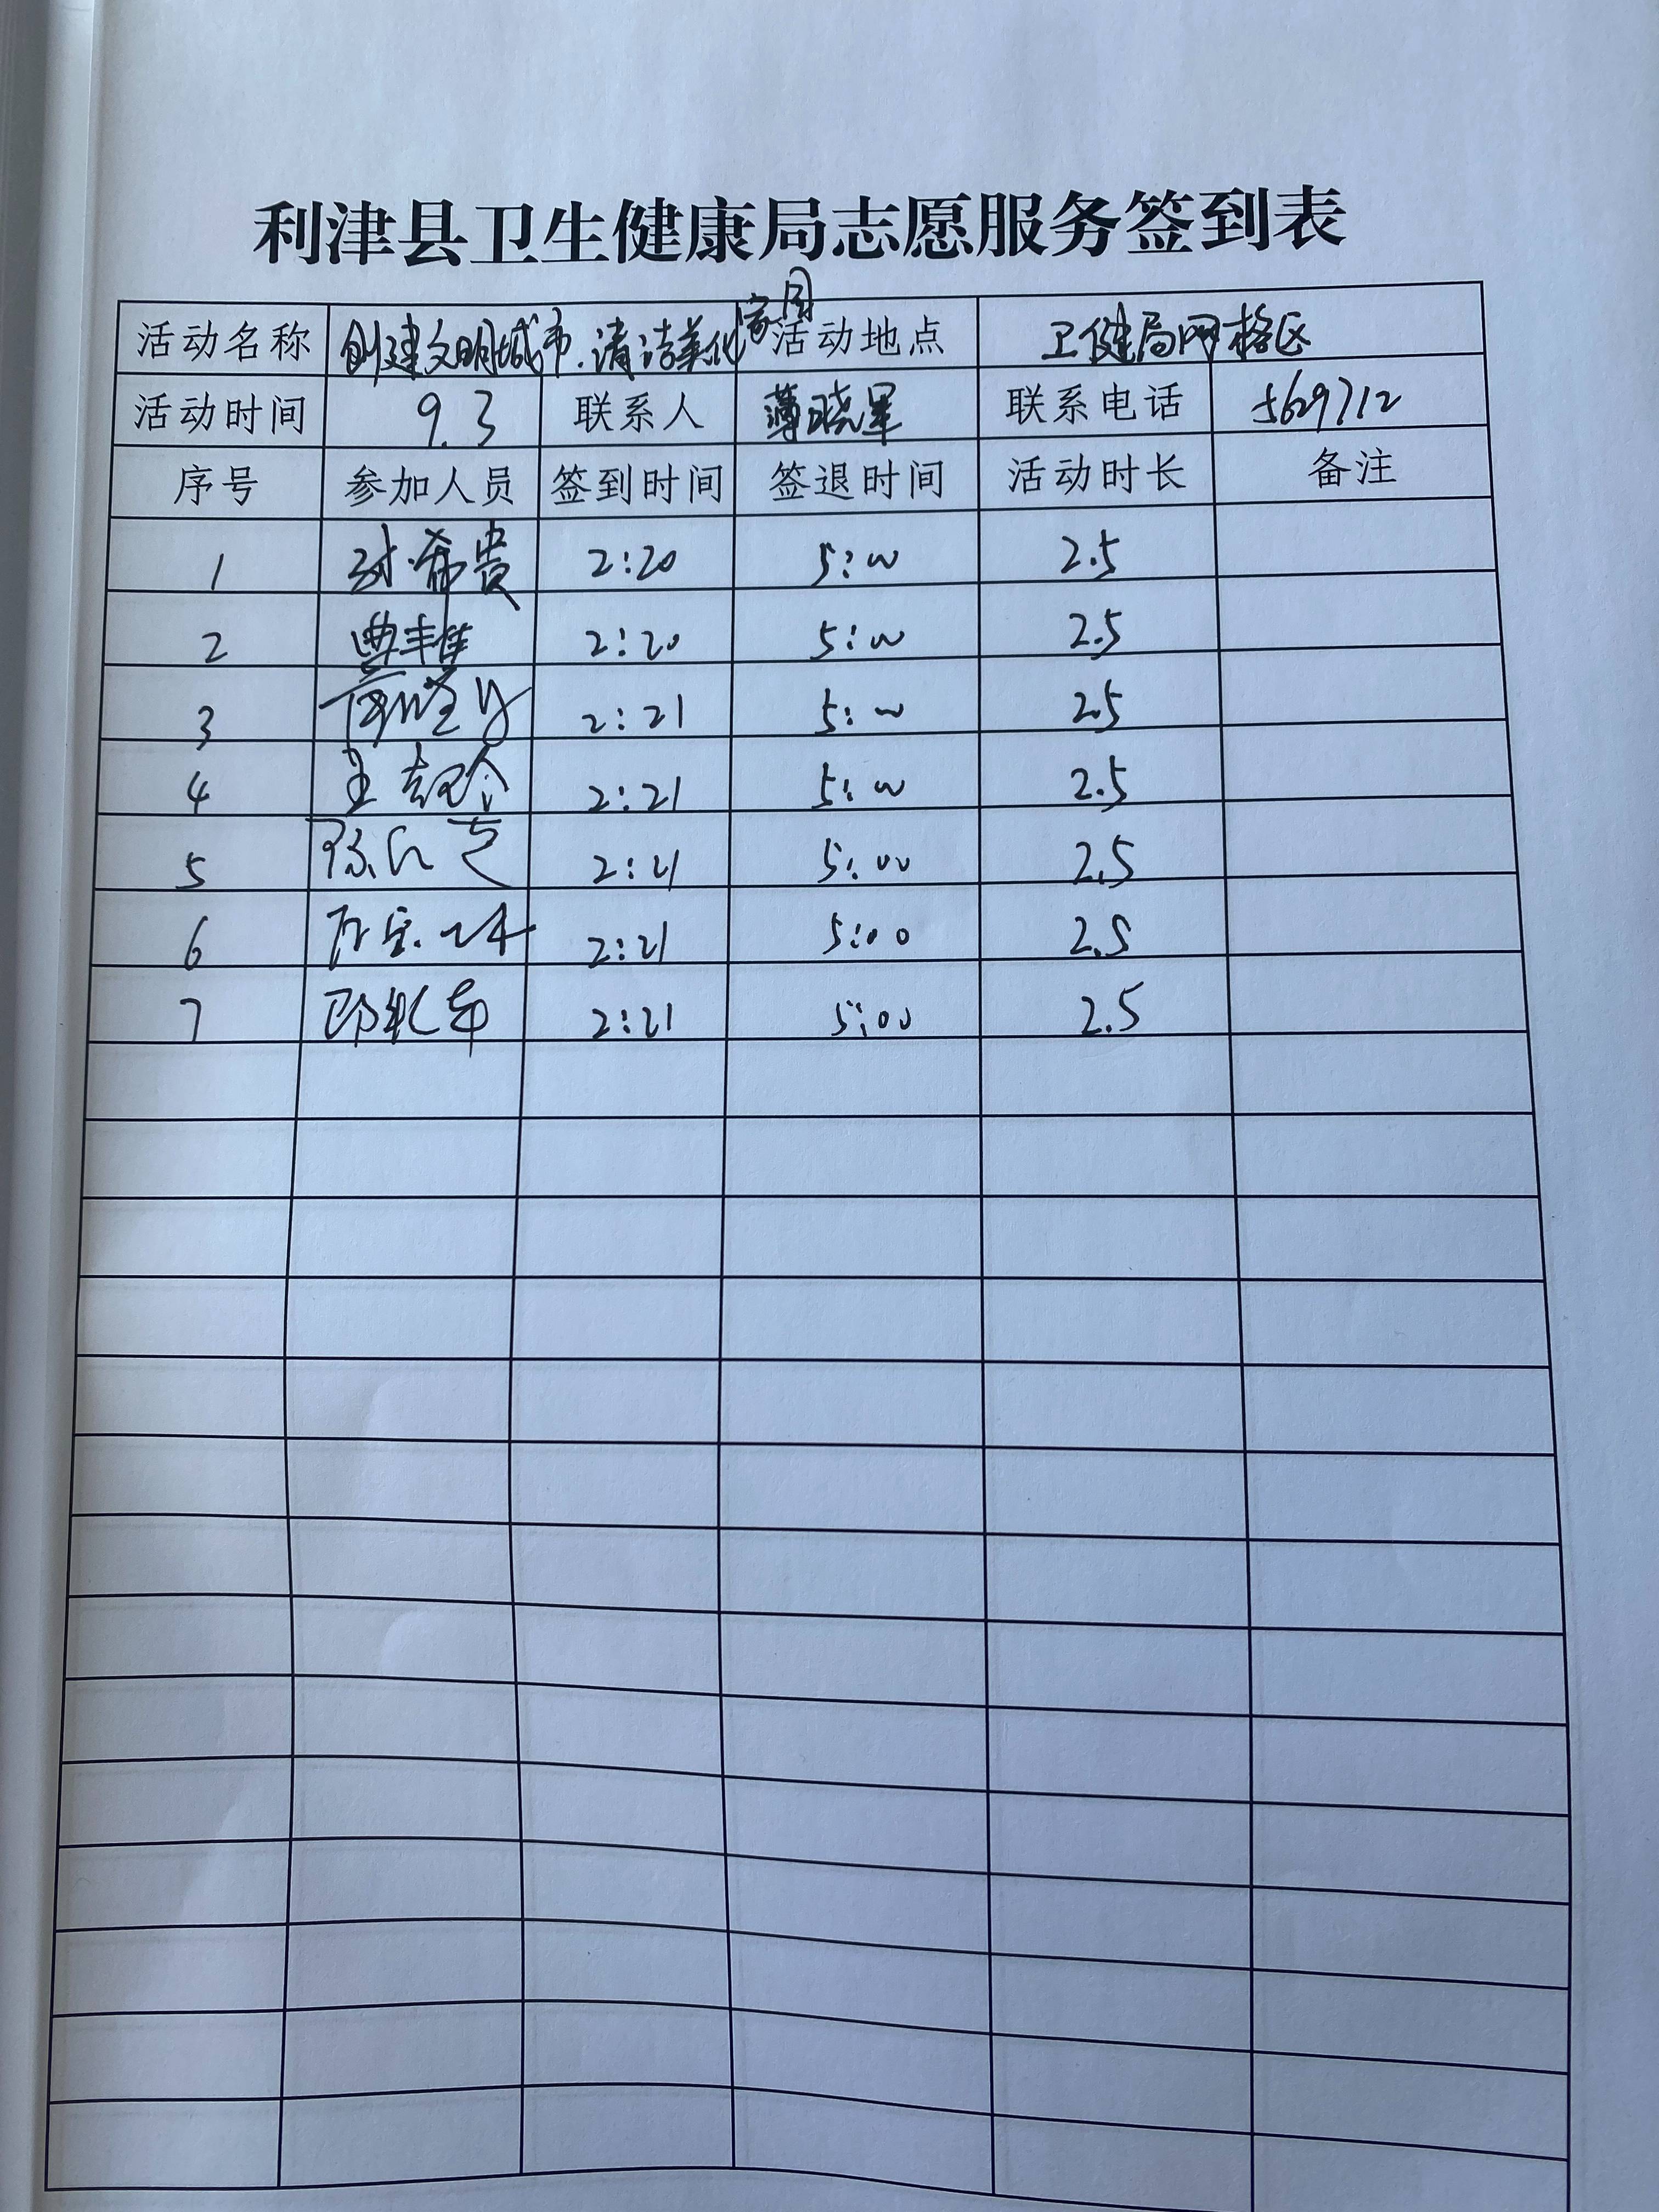 利津县卫生健康局志愿服务签到表
活动名称 创建文明城市.清洁美化家园 活动地点 卫健局网格区
活动时间 9.3 联系人 薄晓军 联系电话 5629712
序号 参加人员 签到时间 签退时间 活动时长 备注
1 希贵 2:20 5:00 2.5
2 2:20 5:00 2.5
3 2:21 5:00 2.5
4 2:21 5:00 2.5
5 2:21 5:00 2.5
6 2:21 5:00 2.5
7 2:21 5:00 2.5